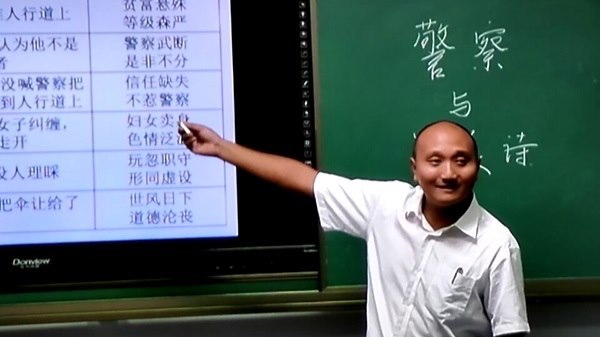 人行道上
贫富悬殊
等级森严
认为他不是
者
警察武断
是非不分
没喊警察把
到人行道上
信任缺失
不惹警察
女子纠缠，
走开
妇女卖
色情泛
没人理睬
玩忽职守
形同虚设
把伞让给了
世风日下
道德沦丧
Donview
警察
与
诗